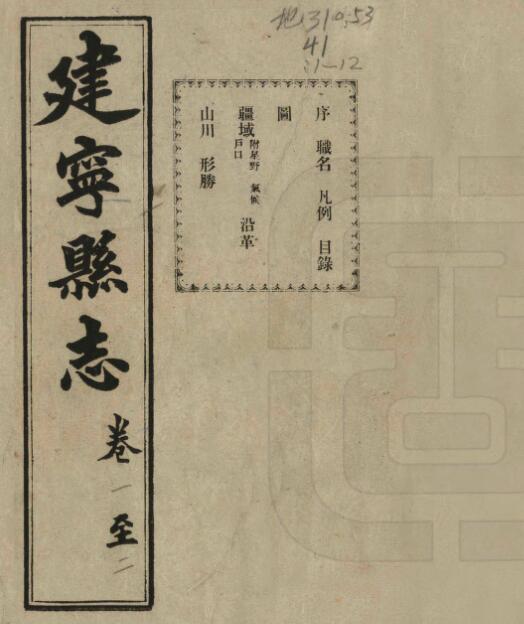 地310.53
41
:1-12
建寧縣志 卷一至二
序 職名 凡例 目錄
圖
疆域 附星野 氣候 戶口 沿革
山川 形勝